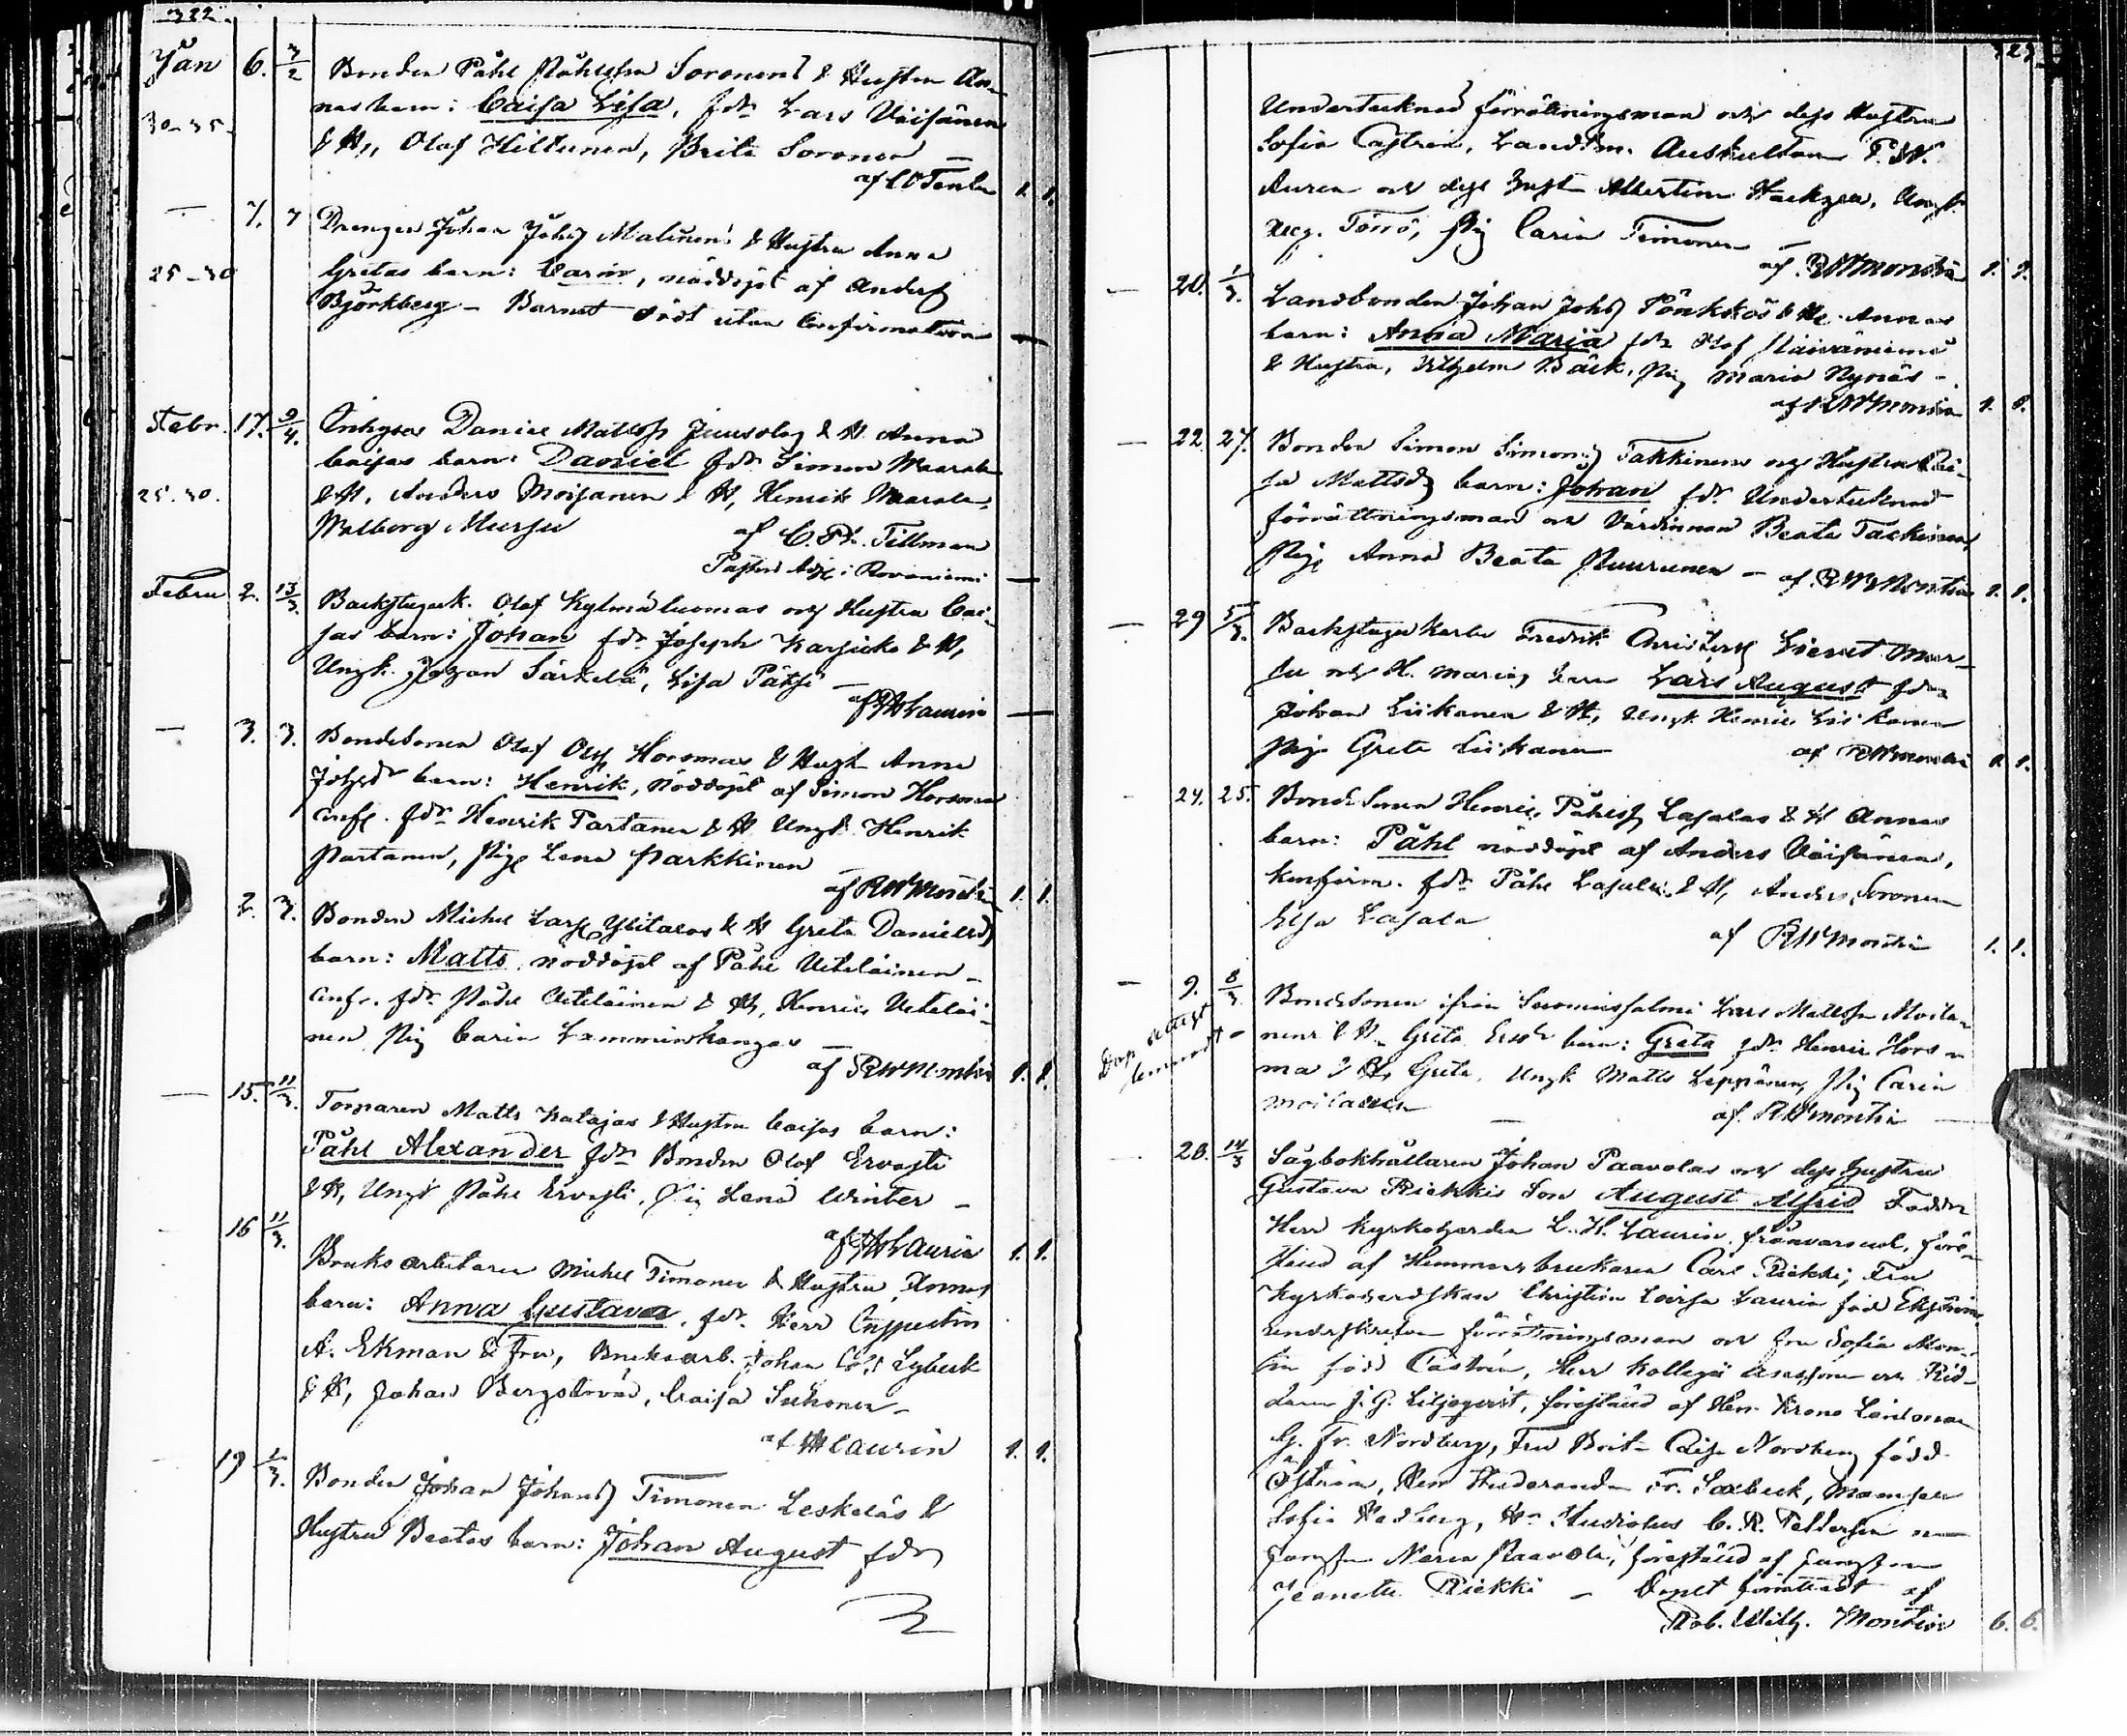 322
Jan 6. 7/2 Bonden Påhl Påhlsson Soronens & Hustru An-
30-35. nas barn: Caisa Lisa, fdr Lars Väisänen
& H., Olof Hiltunen, Brita Soronen
af 1. 1.
— 7. 7 Drengen Johan Johss Malinens & Hustru Anna
25-30 Gretas barn: Carin, nöddöpt af Anders
Björkberg – Barnet dödt utan Confirmation —
Febr. 17. 9/4. Inhyses Daniel Mattss Juusolas & H. Anna
Caisas barn: Daniel fdr Simon Maarala
25.30. & H, Anders Moisanen & H, Henrik Maarala,
Walborg Mursu af C. Fr. Tillman
Pastors Adj. i Rovaniemi —
Febru 2. 13/3. Backstuguk. Olof Kylmäluomas och Hustru Cai-
sas barn: Johan fdr Joseph Karjicko & H,
Ungk. Johan Särkelä, Lisa Pätsi —
af Laurin —
— 3. 3. Bondesonen Olof Olss Horsmas & Hust. Anna
Johsdr barn: Henrik, Nöddöpt af Simon Horsma
Conf. fdr Henrik Partanen & H. Ungk. Henrik
Partanen, Pig. Lena Parkkinen
af RWMontin 1. 1.
2. 3. Bonden Michel Larss Ylitalos & H Greta Danielsd
barn: Matts, nöddöpt af Påhl Veteläinen –
Conf. fdr Påhl Veteläinen & H, Henric Veteläi-
nen Pig Carin Lamminkangas —
af RWMontin 1. 1.
— 15. 11/3. Torparen Matts Katajas & Hustru Caisas barn:
Påhl Alexander fdr Bonden Olof Ervasti
& H, Ungk Påhl Ervasti, Pig Lena Winter –
af Laurin 1. 1.
16 11/3. Bruksarbetaren Michel Timonen & Hustru Annas
barn: Anna Gustava, fdr. Herr Inspector
A. Ekman & Fru, Bruksarb. Johan Lybeck
& H, Johan Bergström, Caisa Suhonen –
af Laurin 1. 1.
19 1/3. Bonden Johan Johanss Timonen Leskeläs &
Hustru Beatas barn: Johan August fdr
323
Undertecknad förrättningsman och dess Hustru
Sofia Castrén, Landtm. Auskultan
Auren och dess Hust Albertina Hackzell, Ungk.
Törrö, Pig Carin Timonen —
af RWMontin 1. 1.
— 20. 1/3. Landbonden Johan Johss Pönkkös & H. Annas
barn: Anna Maria fdr Olof Päivärinne
& Hustru, Wilhelm Bäck, Pig Maria Nynäs –
af RWMontin 1. 1.
— 22. 27. Bonden Simon Simonss Takkinens och Hustru Cai-
sa Mattsdrs barn: Johan fdr Undertecknad
förrättningsman och Värdinnan Beata Tackinen,
Pig. Anna Beata Puurunen — af RWMontin 1. 1.
— 29 5/3. Backstugukarlen Fredrik Christerss Lievet
och H. Marias barn Lars August fdr
Johan Liikanen & H, Ungk Henric Liikanen
Pig. Greta Liikanen af RWMontin 1. 1.
– 24. 25. Bondesonen Henric Påhlss Lasalas & H Annas
barn: Påhl nöddöpt af Anders Väisänen,
Konfirm. fdr Påhl Lasala & H, Anders Soronen
Elsa Lasala
af RWMontin 1. 1.
— 9. 8/3 Bondesonen ifrån Suomussalmi Lars Mattsson Moila-
nens & H. Greta Ersdr barn: Greta fdr Henric Hors-
ma & H, Greta, Ungk Matts Leppänen, Pig Carin
Moilanen — af. RWMontin —
Dop attest
lemnadt –
— 20. 14/3 Sågbokhållaren Johan Paavolas och dess Hustru
Gustava Riekkis Son August Alfrid Fadder
Herr Kyrkoherden L. H. Laurin, frånvarande, före-
städ af Hemmansbrukaren Carl Riekki, Fru
Kyrkoherdskan Christina Lovisa Laurin född Ekström,
underskrefven förrättningsman och Fru Sofia Mon-
tin född Castrén, Herr Kollegii Assessoren och Rid-
daren J. G. Liljeqvist, föreståud af Herr Krono Länsman
G. Fr. Nordberg, Fru Brita Caisa Nordberg född
Öström, Herr Studeranden Fr. Saxbeck, Mamsell
Sofia Hedberg, Hr Studiosus C. R. Pettersson
Jungfru Maria Paavola, föreståud af Jungfru
Jeanette Riekki – Dopet förrättadt af
Rob. Wilh. Montin 6. 6.